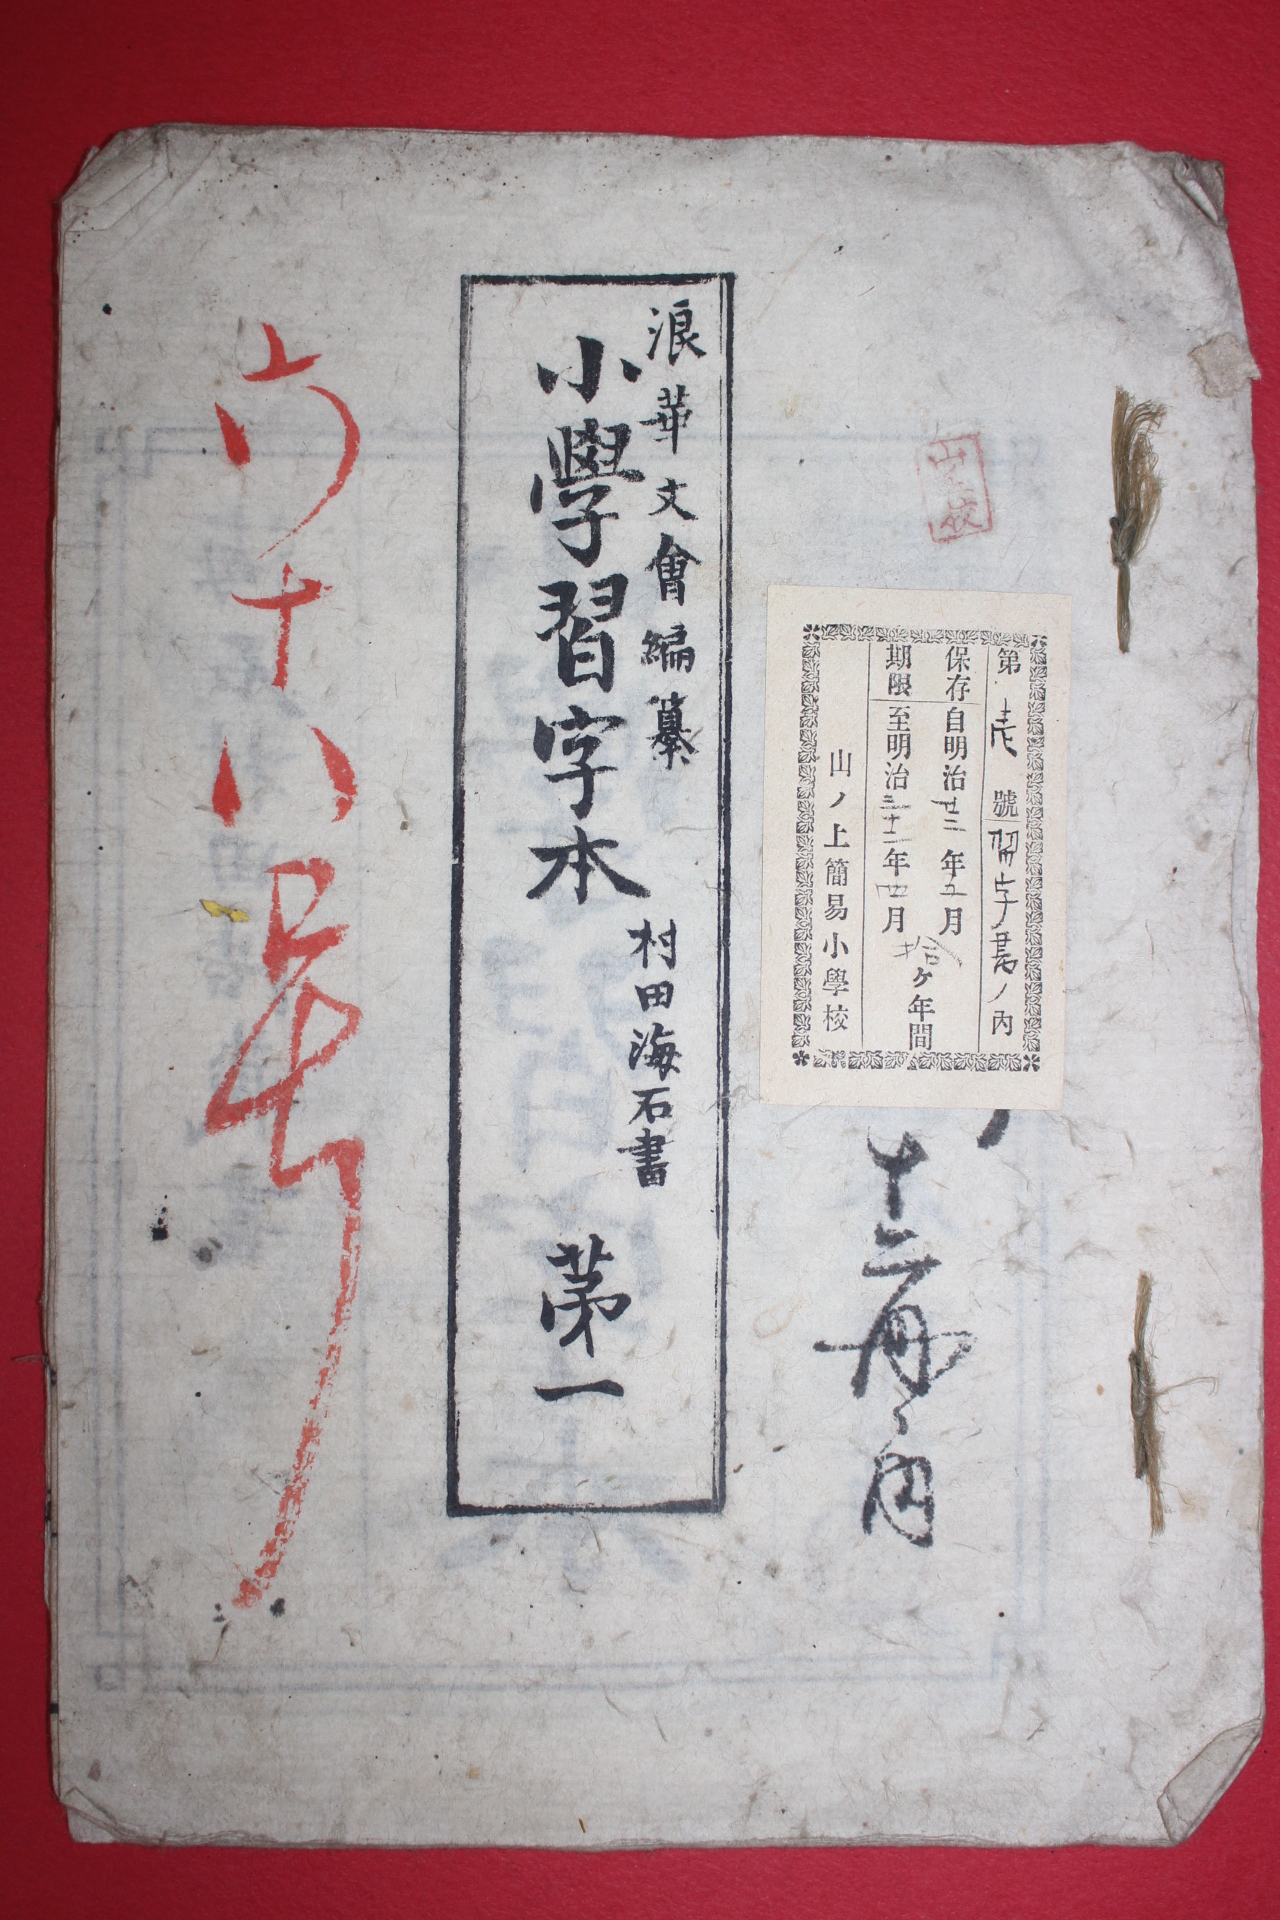 第壱號習字書ノ内
保存期限
自明治廿二年五月
至明治三十二年四月
拾ヶ年間
山ノ上簡易小學校
十二冊ノ内
浪華文會編纂
小學習字本
村田海石書
第一
六十八号